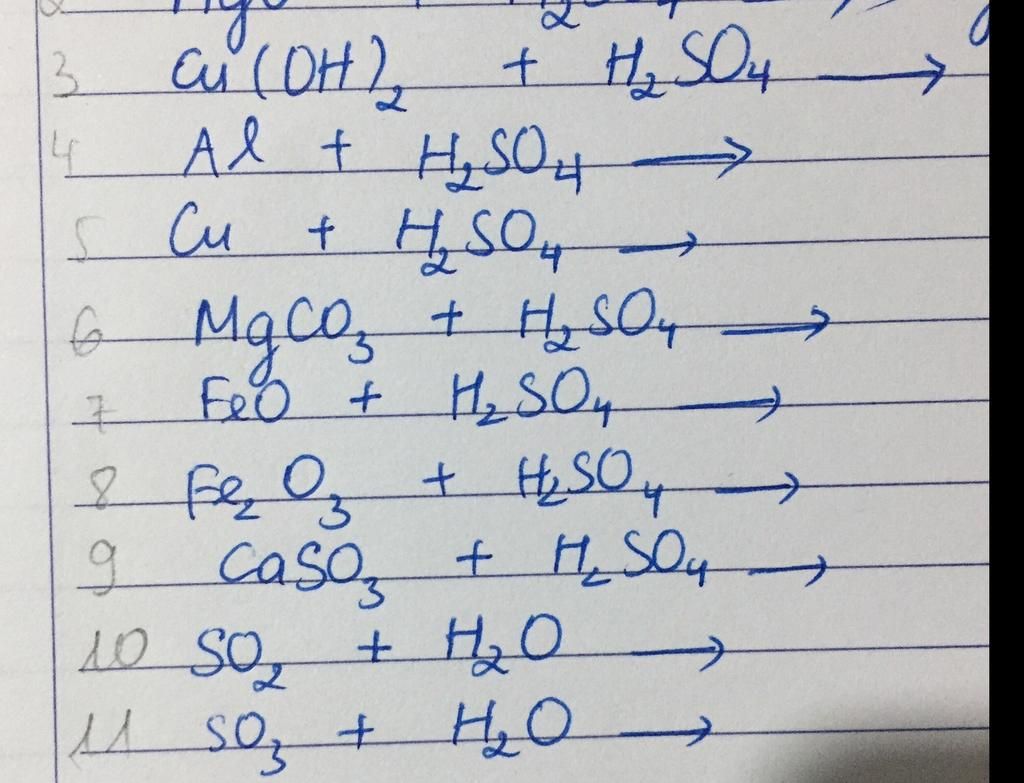 3 Cu(OH)₂ + H₂SO₄ →
4 Al + H₂SO₄ →
5 Cu + H₂SO₄ →
6 MgCO₃ + H₂SO₄ →
7 FeO + H₂SO₄ →
8 Fe₂O₃ + H₂SO₄ →
9 CaSO₃ + H₂SO₄ →
10 SO₂ + H₂O →
11 SO₃ + H₂O →